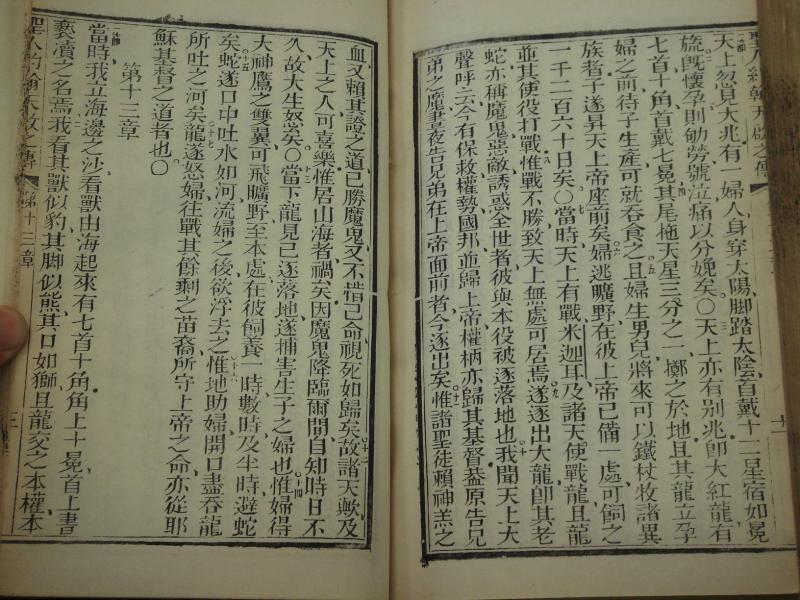 聖人約翰天啟之傳
十二
天上忽見大兆有一婦人身穿太陽脚踏太陰首戴十二星宿如冕
旒既懷孕則劬勞號泣痛以分娩矣○天上亦有別兆即大紅龍有
七首十角首戴七冕其尾拖天星三分之一擲之於地且其龍立孕
婦之前待子生產可就吞食之且婦生男兒將來可以鐵杖牧諸異
族者子遂昇天上帝座前矣婦逃曠野在彼上帝已備一處可飼之
一千二百六十日矣○當時天上有戰米迦耳及諸天使戰龍且龍
並其使役打戰惟戰不勝致天上無處可居焉遂逐出大龍即其老
蛇亦稱魔鬼惡敵誘惑全世者彼與本役被逐落地也我聞天上大
聲呼云今有保救權勢國邦並歸上帝權柄亦歸其基督蓋原告兄
弟之魔晝夜告兄弟在上帝面前者今逐出矣惟諸聖徒賴神羔之
血又賴其證之道已勝魔鬼又不惜己命視死如歸矣故諸天歟及
天上之人可喜樂惟居山海者禍矣因魔鬼降臨爾間自知時日不
久故大生怒矣○當下龍見已逐落地遂捕害生子之婦也惟婦得
大神鷹之雙翼可飛曠野至本處在彼飼養一時數時及半時避蛇
矣蛇遂口中吐水如河流婦之後欲浮去之惟地助婦開口盡吞龍
所吐之河矣龍遂怒婦往戰其餘剩之苗裔所守上帝之命亦從耶
穌基督之道者也○
第十三章
當時我立海邊之沙看獸由海起來有七首十角角上十冕首上書
褻瀆之名焉我看其獸似豹其脚似熊其口如獅且龍交之本權本
聖人約翰天啟之傳
第十三章